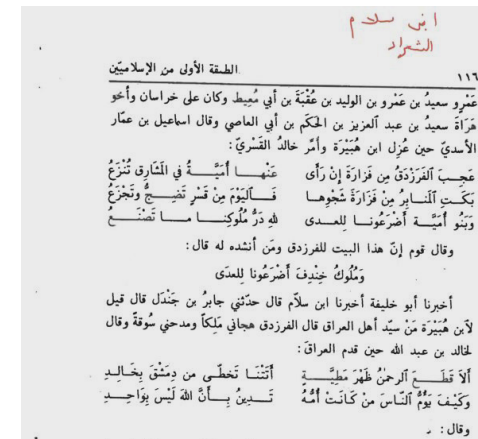 ابن سلام
الشعراء
١١٦ الطبقة الأولى من الإسلاميّين
عَمْرٍو سعيدُ بن عَمْرو بن الوليد بن عُقْبَةَ بن أبي مُعيط وكان على خراسان وأخو
هَرَاةَ سعيدُ بن عبد العزيز بن الحَكَم بن أبي العاصي وقال اسماعيل بن عمّار
الأسديّ حين عُزِل ابن هُبَيْرة وأمّر خالدُ القَسْريّ:
عَجِبَ ٱلفَرَزدَقُ مِن فَزارَةَ إن رَأى عَنْها أُمَيَّةُ في المَشارِق تُنْزَعُ
بَكَتِ المَنابِرُ مِن فَزَارَةَ شَجْوِها فَٱلْيَوْمَ مِنْ قَسْرٍ تَضِجُّ وتَجْزَعُ
وَبَنُو أُمَيَّةَ أَضْرَعُونا لِلعدى للهِ دَرُّ مُلُوكِنا ما تَصْنَعُ
وقال قوم إنّ هذا البيت للفرزدق ومَن أنشده له قال:
وَمُلُوكُ خِنْدِفَ أَضْرَعُونا لِلعِدَى
أخبرنا أبو خليفة أخبرنا ابن سلّام قال حدّثني جابرُ بن جَنْدَل قال قيل
لآبن هُبَيْرة مَنْ سيّد أهل العراق قال الفرزدق هجاني مَلِكاً ومدحني سُوقةً وقال
لخالد بن عبد الله حين قدم العراقَ:
أَلاَ قَطَعَ ٱلرحمنُ ظَهْرَ مَطِيَّةٍ أَتَتْنَا تَخَطَّى من دِمَشْقَ بِخَالِدِ
وَكَيْفَ يَؤُمُّ النّاسَ مَنْ كَانَتْ أُمُّهُ تَدِينُ بِأَنَّ اللهَ لَيْسَ بِوَاحِدِ
وقال: